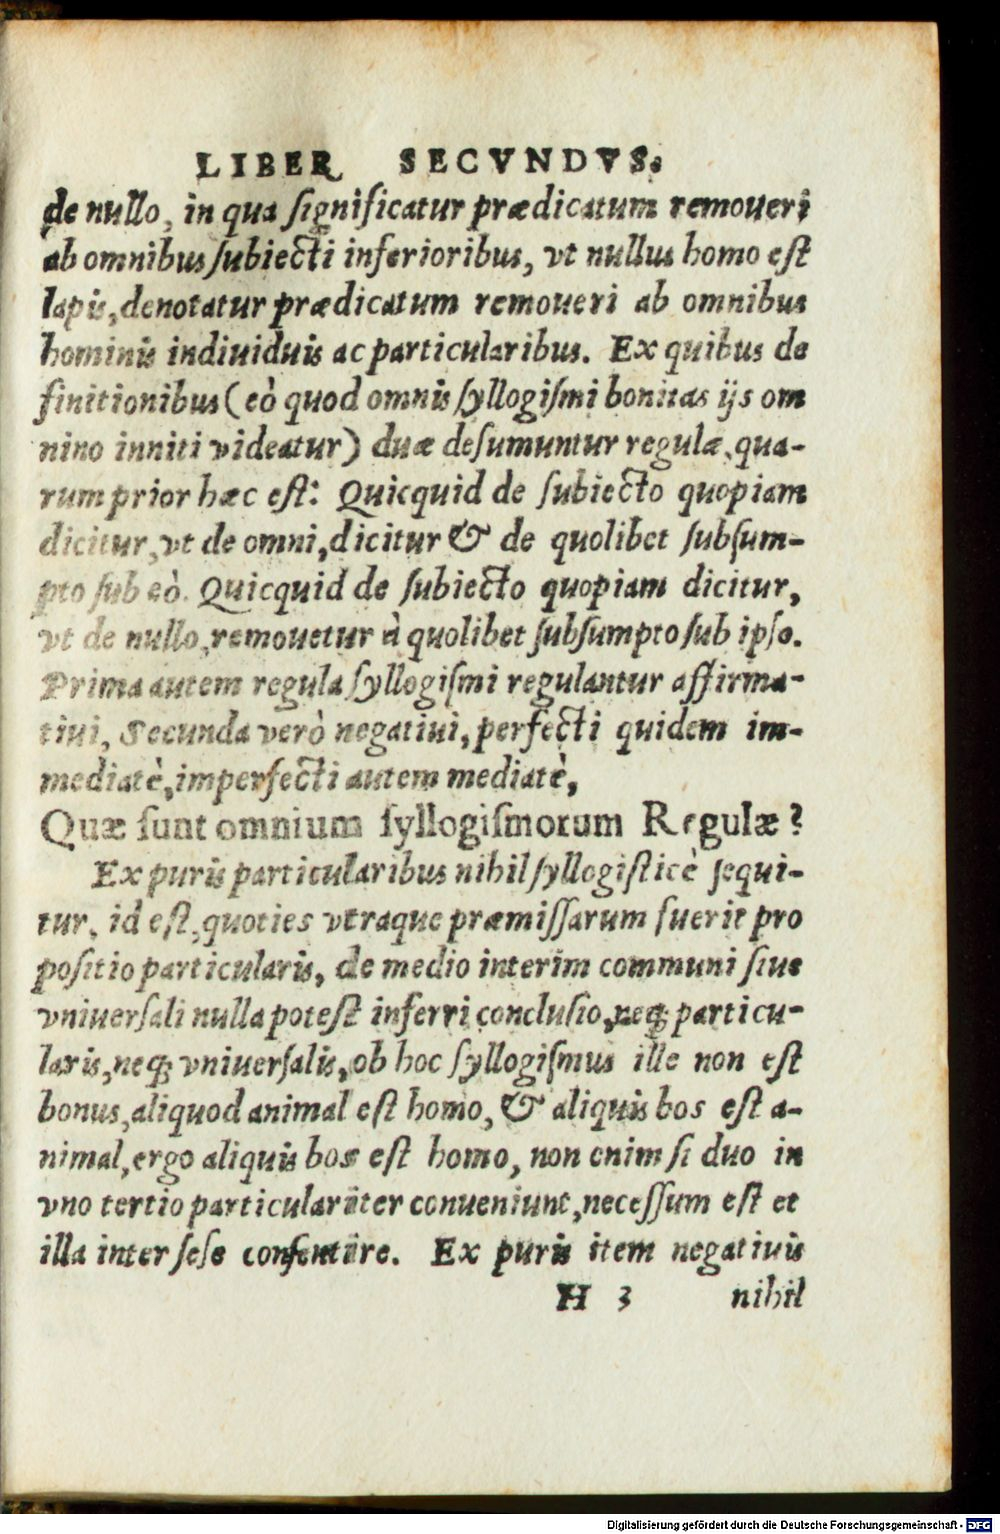 LIBER SECVNDVS.
de nullo, in qua ſignificatur prædicatum remoueri
ab omnibus ſubiecti inferioribus, vt nullus homo eſt
lapis, denotatur prædicatum remoueri ab omnibus
hominis indiuiduis ac particularibus. Ex quibus de
finitionibus (eò quod omnis ſyllogiſmi bonitas ijs om
nino inniti videatur) duæ deſumuntur regulæ, qua-
rum prior hæc eſt: Quicquid de ſubiecto quopiam
dicitur, vt de omni, dicitur & de quolibet ſubſum-
pto ſub eò. Quicquid de ſubiecto quopiam dicitur,
vt de nullo, remouetur à quolibet ſubſumpto ſub ipſo.
Prima autem regula ſyllogiſmi regulantur affirma-
tiui, Secunda verò negatiui, perfecti quidem im-
mediatè, imperfecti autem mediatè,
Quæ ſunt omnium ſyllogiſmorum Regulæ?
Ex puris particularibus nihil ſyllogiſticè ſequi-
tur, id eſt, quoties vtraque præmiſſarum fuerit pro
poſitio particularis, de medio interim communi ſiue
vniuerſali nulla poteſt inferri concluſio, neq; particu-
laris, neq; vniuerſalis, ob hoc ſyllogiſmus ille non eſt
bonus, aliquod animal eſt homo, & aliquis bos eſt a-
nimal, ergo aliquis bos eſt homo, non enim ſi duo in
vno tertio particulariter conueniunt, neceſſum eſt et
illa inter ſeſe conſentire. Ex puris item negatiuis
H 3 nihil
Digitalisierung gefördert durch die Deutsche Forschungsgemeinschaft - DFG